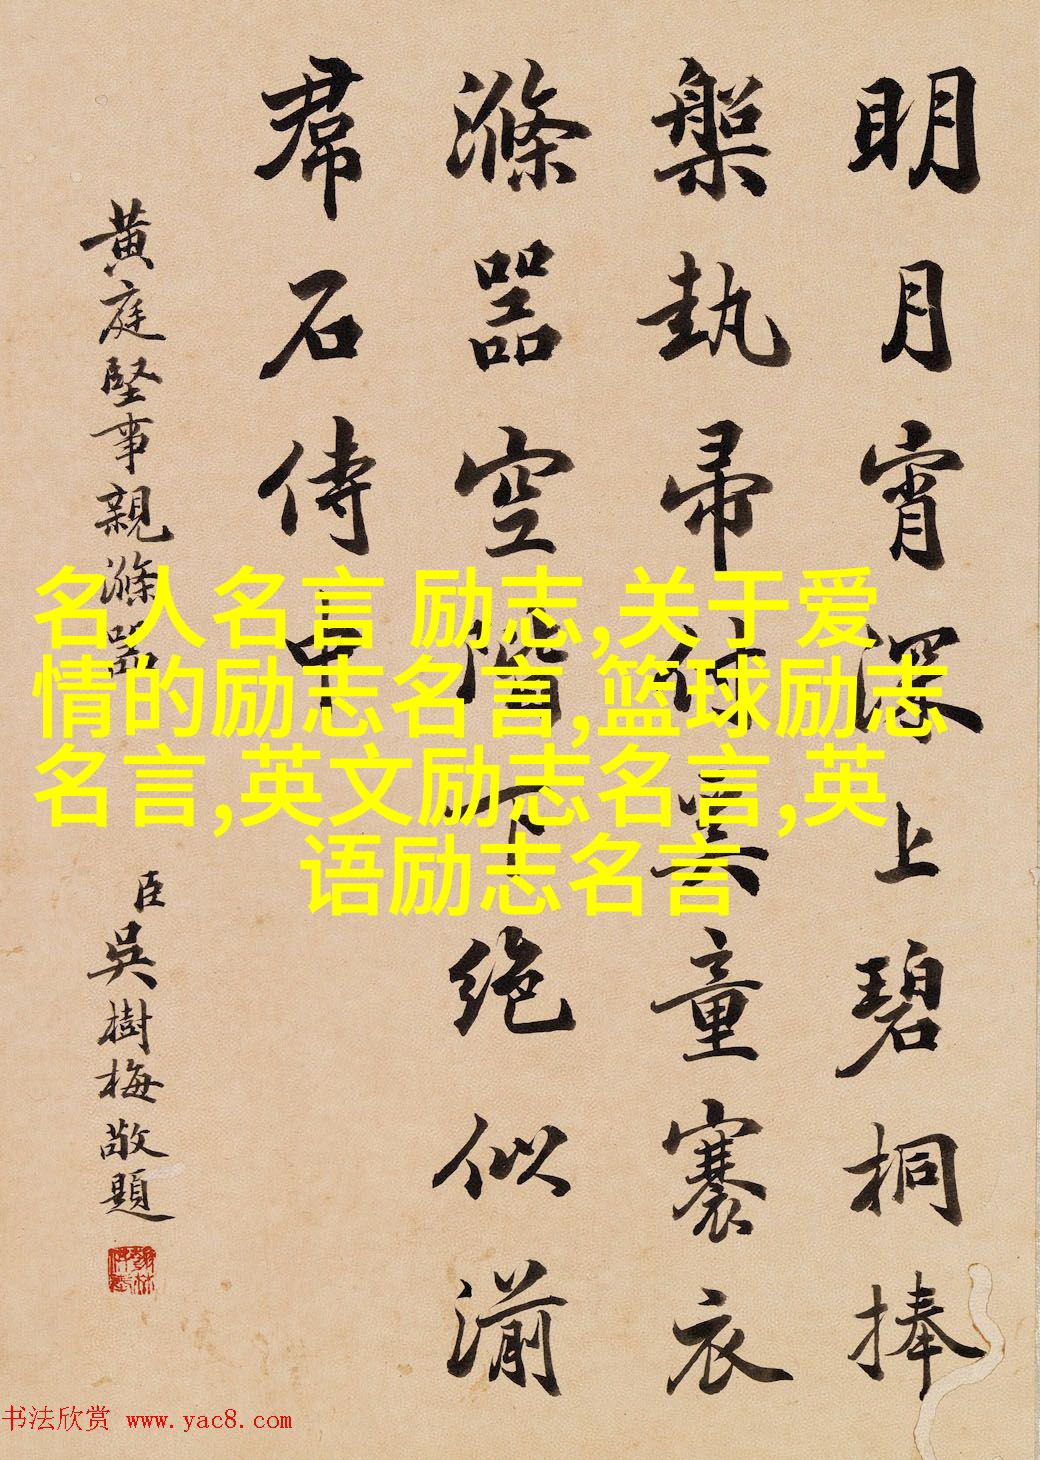 明月宵深上碧桐捧
槃執帚付奚童褰衣
滌器空階下絕似湔
帬石侍中
黃庭堅事親滌器
臣吳樹梅敬題
名人名言 励志,关于爱
情的励志名言,篮球励志
名言,英文励志名言,英
语励志名言
书法欣赏 www.yac8.com